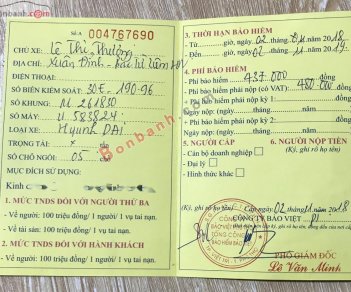 Số:A 004767690
CHỦ XE: Lê Thị Thưởng
ĐỊA CHỈ: Xuân Đỉnh - Bắc Từ Liêm - HN
ĐIỆN THOẠI:
SỐ BIỂN KIỂM SOÁT: 30E-190-96
SỐ KHUNG: M 261830
SỐ MÁY: U 583824
LOẠI XE: Hyunh DAI
TRỌNG TẢI: x tấn
SỐ CHỖ NGỒI: 05 chỗ
MỤC ĐÍCH SỬ DỤNG:
Kinh
1. MỨC TNDS ĐỐI VỚI NGƯỜI THỨ BA
- Về người: 100 triệu đồng/ 1 người/ 1 vụ tai nạn.
- Về tài sản: 100 triệu đồng/ 1 vụ tai nạn.
2. MỨC TNDS ĐỐI VỚI HÀNH KHÁCH
- Về người: 100 triệu đồng/ 1 người/ 1 vụ tai nạn.
3. THỜI HẠN BẢO HIỂM
- Từ: giờ, ngày 02 tháng 11 năm 2018
- Đến: giờ, ngày 02 tháng 11 năm 2019
4. PHÍ BẢO HIỂM
- Phí bảo hiểm: 437.000 đồng
- Phí bảo hiểm phải nộp (có VAT): 480.000 đồng
- Phí bảo hiểm phải nộp kỳ 1:
Ngày nộp: tháng năm
- Phí bảo hiểm phải nộp kỳ 2:
Ngày nộp: tháng năm
5. NGƯỜI CẤP
- Cán bộ doanh nghiệp
- Đại lý
- Hình thức khác
6. NGƯỜI NỘP TIỀN
(Ký, ghi rõ họ tên)
(Ký, ghi rõ họ tên) Cấp ngày 02 tháng 11 năm 2018
CÔNG TY BẢO VIỆT
TỔNG CÔNG TY
BẢO HIỂM BẢO VIỆT
PHÓ GIÁM ĐỐC
Lê Văn Minh
Bonbanh.com